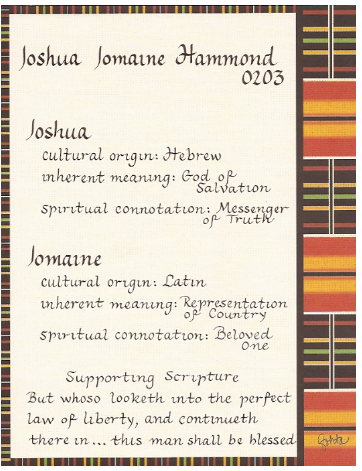 Joshua Jomaine Hammond
0203
Joshua
cultural origin: Hebrew
inherent meaning: God of
Salvation
spiritual connotation: Messenger
of Truth
Jomaine
cultural origin: Latin
inherent meaning: Representation
of Country
spiritual connotation: Beloved
One
Supporting Scripture
But whoso looketh into the perfect
law of liberty, and continueth
there in... this man shall be blessed